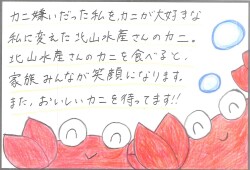 カニ嫌いだった私を、カニが大好きな
私に変えた北山水産さんのカニ。
北山水産さんのカニを食べると、
家族みんなが笑顔になります。
また、おいしいカニを待ってます!!